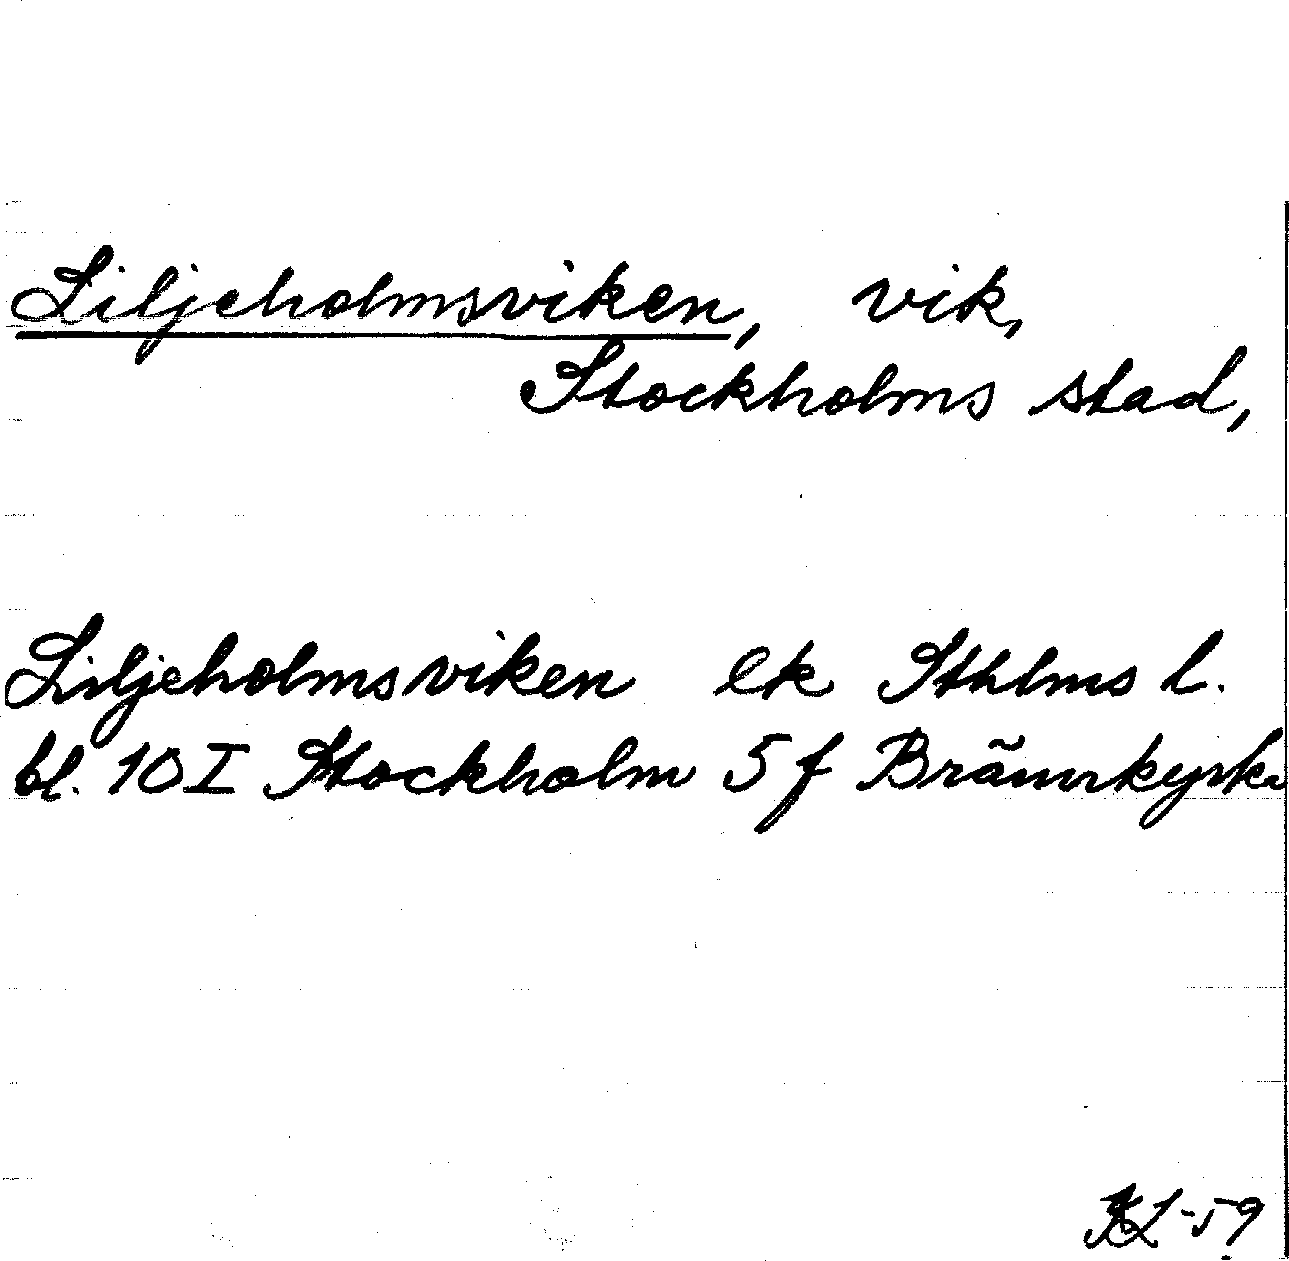 Liljeholmsviken, vik,
Stockholms stad,
Liljeholmsviken ek Sthlms l.
bl. 10 I Stockholm 5 f Brännkyrka
-59